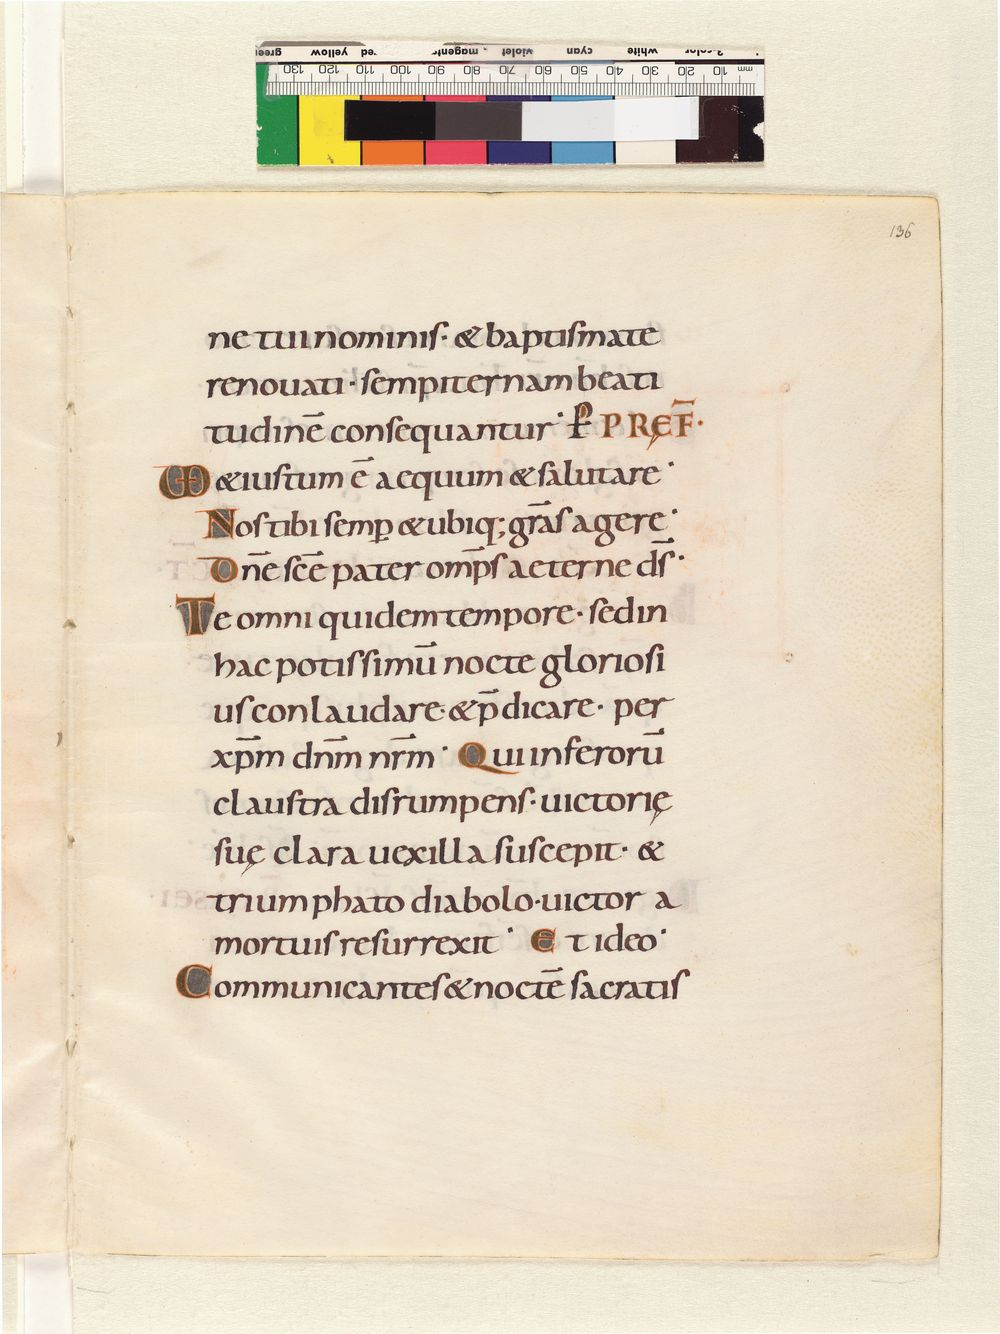 136
ne tui nominis· & baptismate
renouati· sempiternam beati
tudinē consequantur· P̲ PRĘF̄·
UD & iustum ē aequum & salutare·
Nos tibi semꝑ & ubiq; gr̄as agere·
Dn̄e sc̄e pater omp̄s aeterne ds̄·
Te omni quidem tempore· sed in
hac potissimū nocte gloriosi
us conlaudare· & p̄dicare· per
xp̄m dn̄m nr̄m· Qui inferorū
claustra disrumpens· uictorię
suę clara uexilla suscepit· &
triumphato diabolo· uictor a
mortuis resurrexit· Et ideo·
Communicantes & noctē sacratis